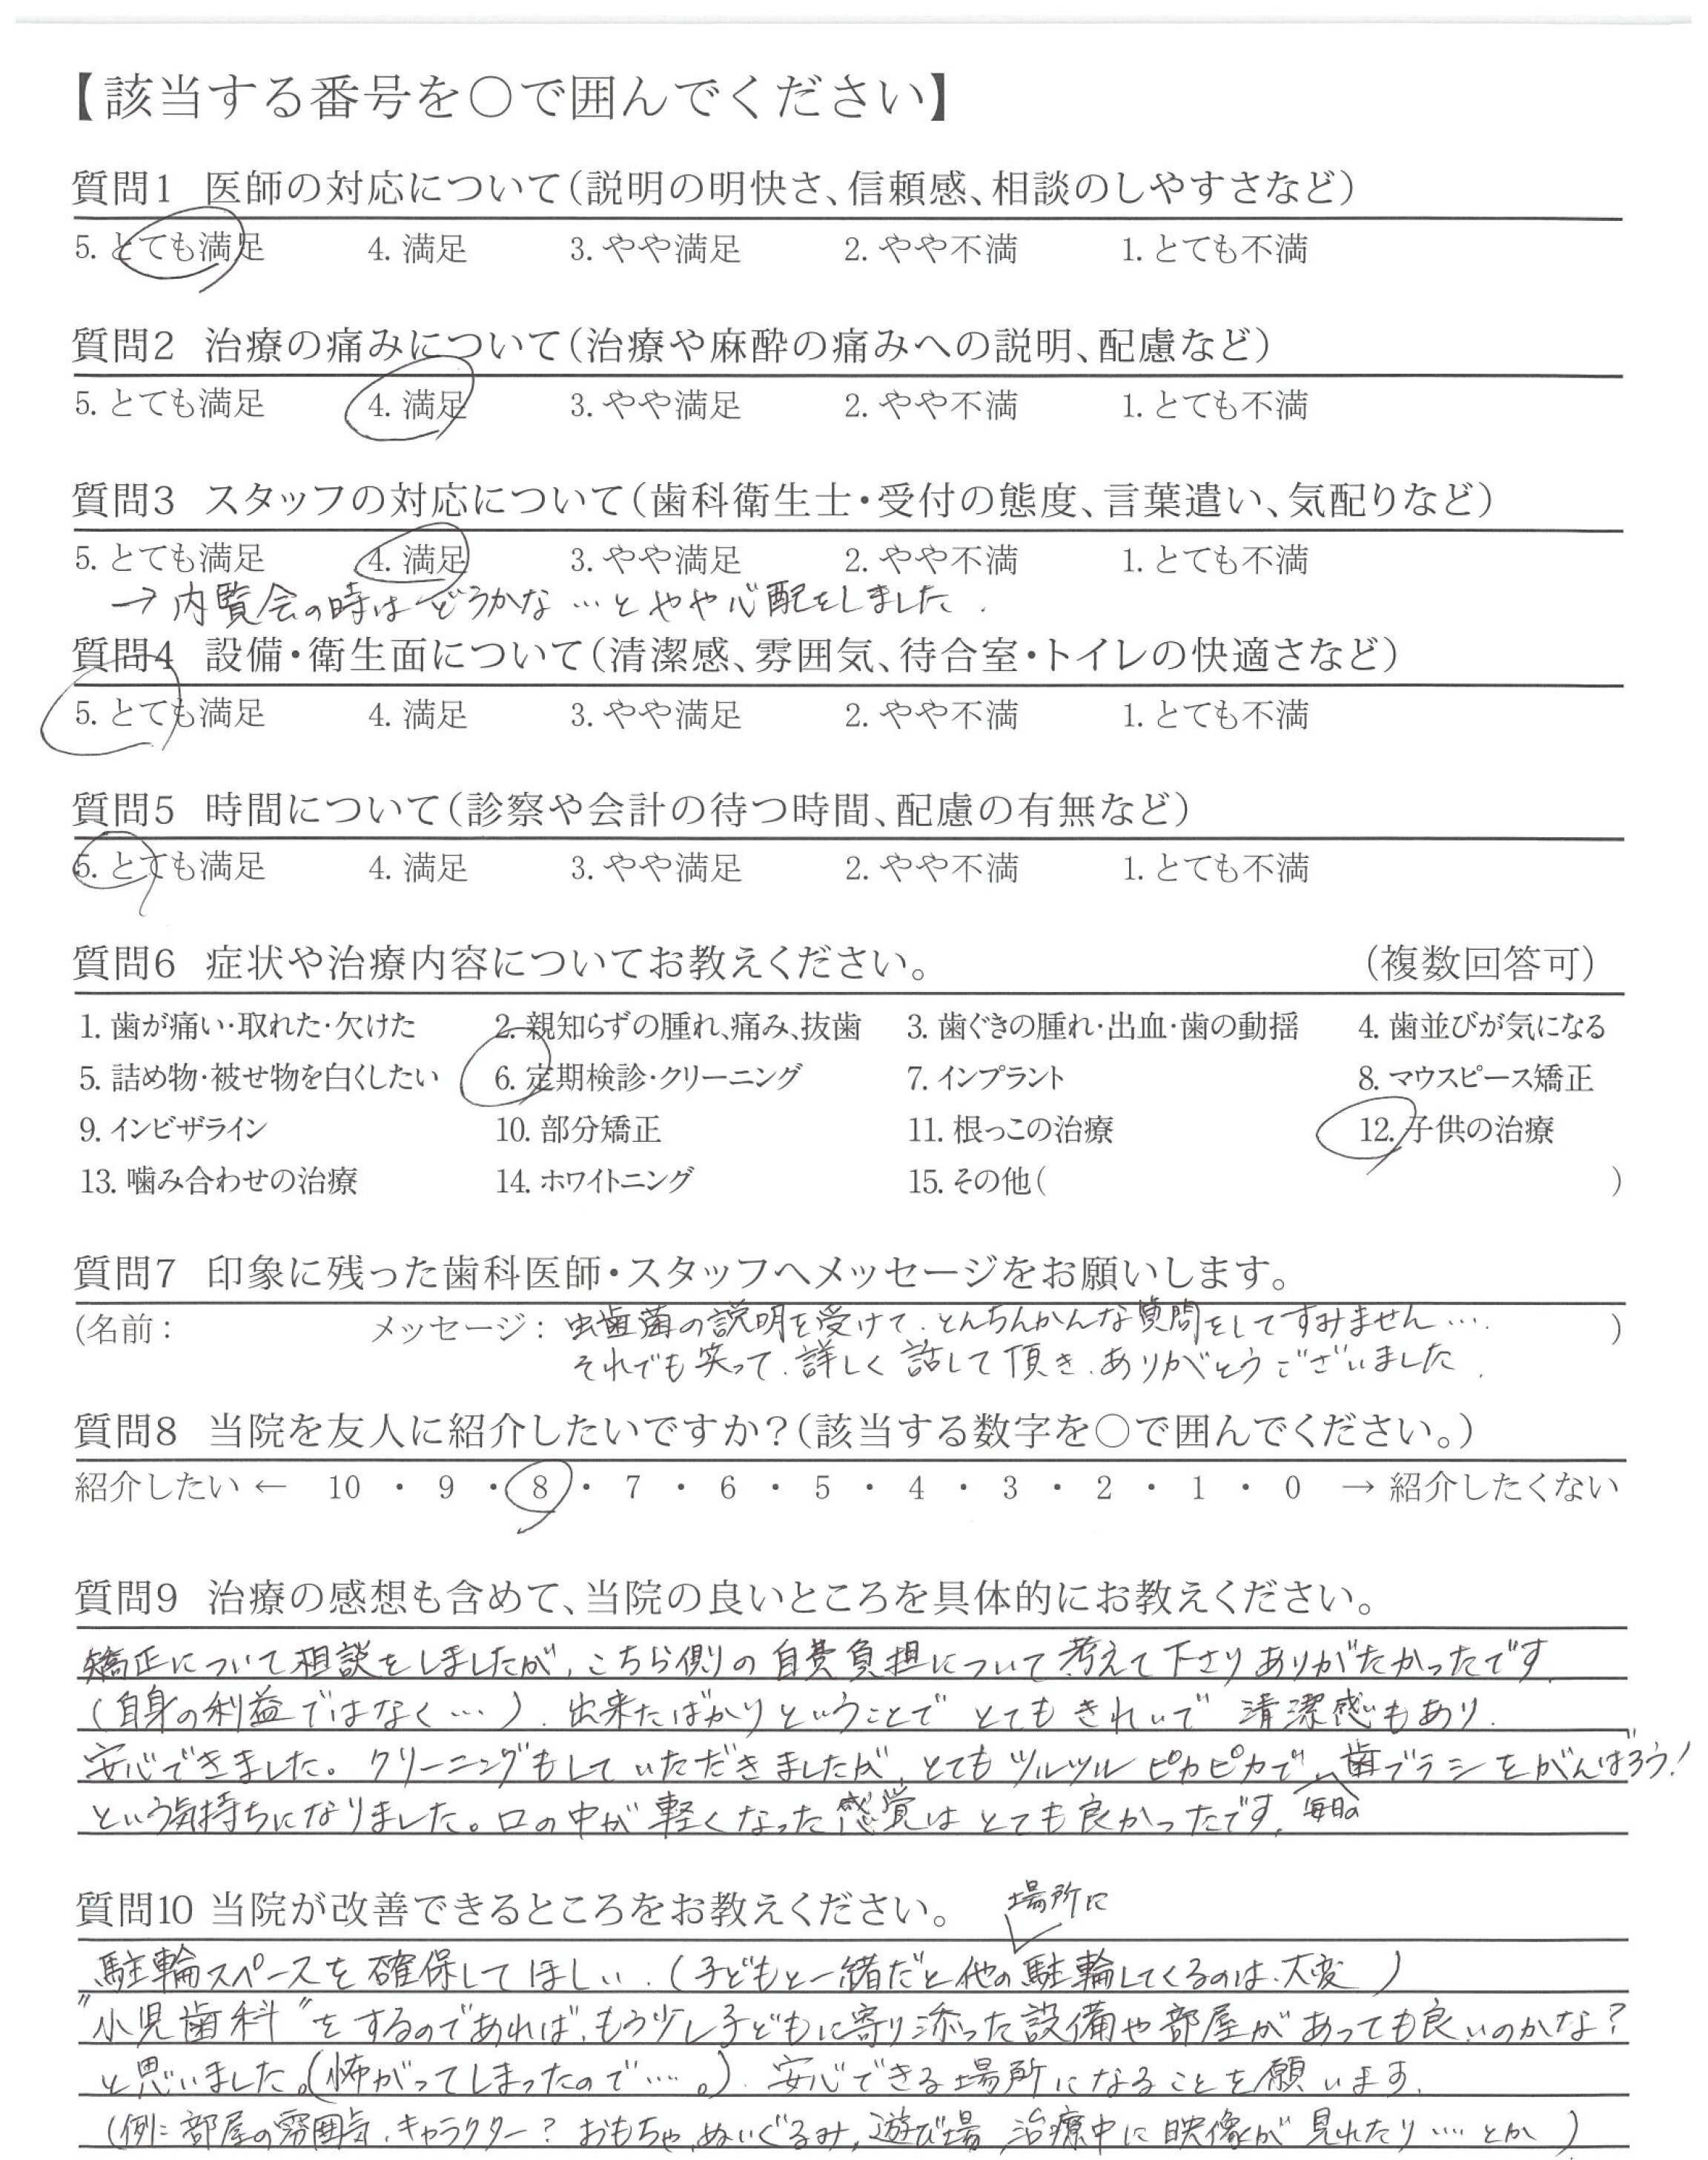 【該当する番号を〇で囲んでください】
質問1 医師の対応について(説明の明快さ、信頼感、相談のしやすさなど)
5. とても満足 4. 満足 3. やや満足 2. やや不満 1. とても不満
質問2 治療の痛みについて(治療や麻酔の痛みへの説明、配慮など)
5. とても満足 4. 満足 3. やや満足 2. やや不満 1. とても不満
質問3 スタッフの対応について(歯科衛生士・受付の態度、言葉遣い、気配りなど)
5. とても満足 4. 満足 3. やや満足 2. やや不満 1. とても不満
→ 内覧会の時はどうかな…とやや心配をしました.
質問4 設備・衛生面について(清潔感、雰囲気、待合室・トイレの快適さなど)
5. とても満足 4. 満足 3. やや満足 2. やや不満 1. とても不満
質問5 時間について(診察や会計の待つ時間、配慮の有無など)
5. とても満足 4. 満足 3. やや満足 2. やや不満 1. とても不満
質問6 症状や治療内容についてお教えください。 (複数回答可)
1. 歯が痛い・取れた・欠けた 2. 親知らずの腫れ、痛み、抜歯 3. 歯ぐきの腫れ・出血・歯の動揺 4. 歯並びが気になる
5. 詰め物・被せ物を白くしたい 6. 定期検診・クリーニング 7. インプラント 8. マウスピース矯正
9. インビザライン 10. 部分矯正 11. 根っこの治療 12. 子供の治療
13. 噛み合わせの治療 14. ホワイトニング 15. その他( )
質問7 印象に残った歯科医師・スタッフへメッセージをお願いします。
(名前: メッセージ: 虫歯菌の説明を受けて、とんちんかんな質問をしてすみません…. )
それでも笑って、詳しく話して頂き、ありがとうございました.
質問8 当院を友人に紹介したいですか?(該当する数字を〇で囲んでください。)
紹介したい ← 10 ・ 9 ・ 8 ・ 7 ・ 6 ・ 5 ・ 4 ・ 3 ・ 2 ・ 1 ・ 0 → 紹介したくない
質問9 治療の感想も含めて、当院の良いところを具体的にお教えください。
矯正について相談をしましたが、こちら側の自費負担について考えて下さりありがたかったです.
(自身の利益ではなく…). 出来たばかりということでとてもきれいで清潔感もあり.
安心できました。クリーニングもしていただきましたが、とてもツルツルピカピカで、歯ブラシをがんばろう!
という気持ちになりました。口の中が軽くなった感覚はとても良かったです. 毎日の
質問10 当院が改善できるところをお教えください。 場所に
駐輪スペースを確保してほしい.(子どもと一緒だと他の駐輪してくるのは、大変)
"小児歯科"をするのであれば、もう少し子どもに寄り添った設備や部屋があっても良いのかな?
と思いました。(怖がってしまったので…。). 安心できる場所になることを願います.
(例:部屋の雰囲気、キャラクター?おもちゃ、ぬいぐるみ、遊び場、治療中に映像が見れたり…とか)